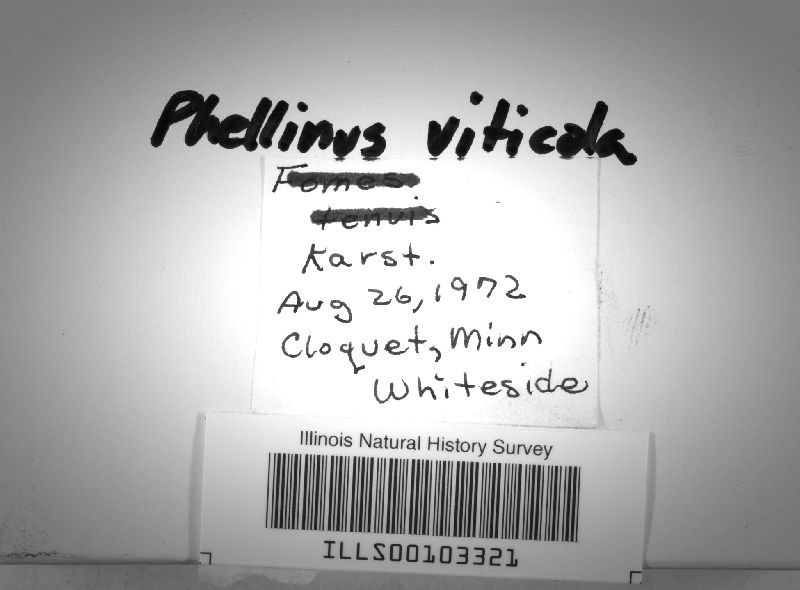 Phellinus viticola
Fomes
tenuis
Karst.
Aug 26, 1972
Cloquet, Minn
Whiteside
Illinois Natural History Survey
ILLS00103321